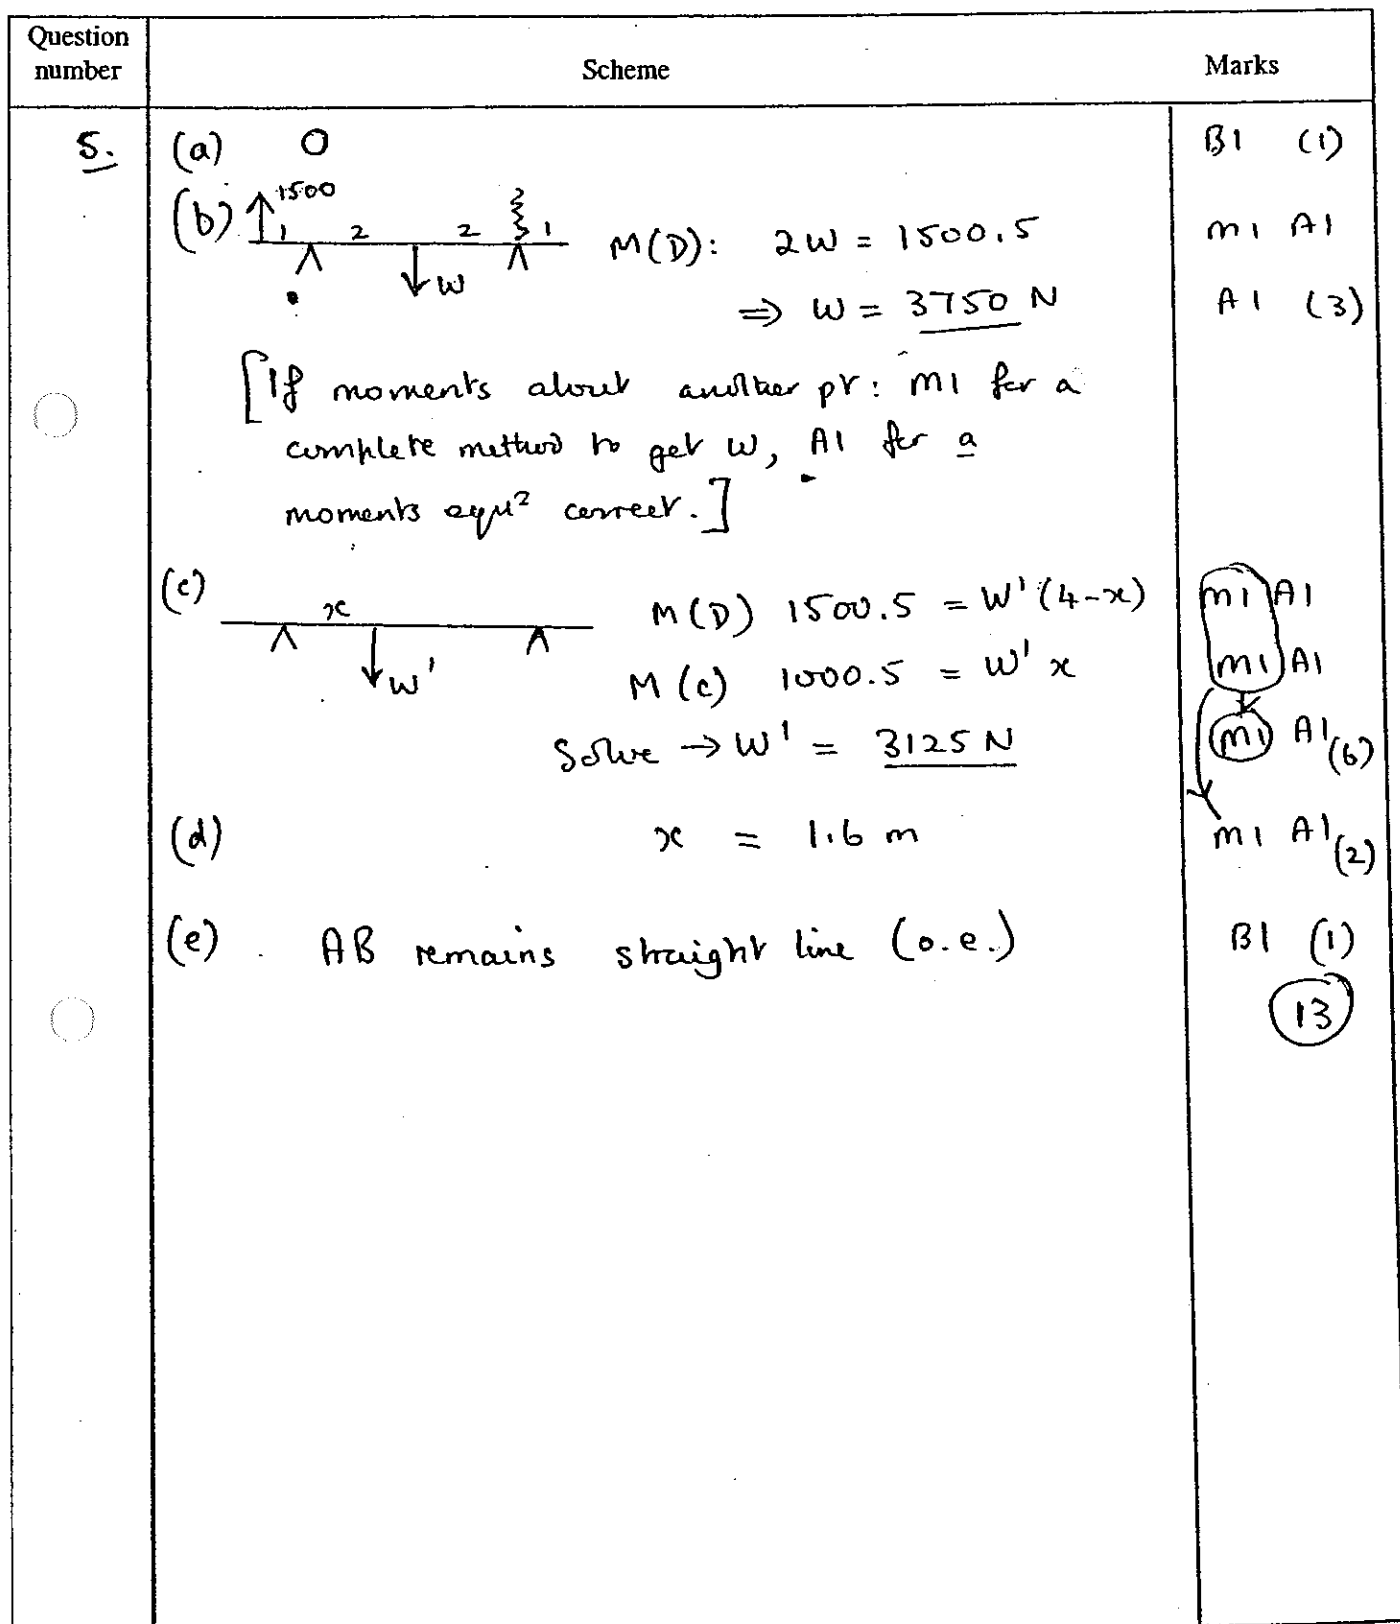 Question number Scheme Marks
5. (a) 0 B1 (1)
(b) 1500
1 2 2 1 M(D): 2W = 1500.5 M1 A1
W
⇒ W = 3750 N A1 (3)
[If moments about another pt: M1 for a
complete method to get W, A1 for a
moments equ² correct.]
(c) x M(D) 1500.5 = W'(4-x) M1 A1
W' M(c) 1000.5 = W' x M1 A1
Solve → W' = 3125 N M1 A1 (6)
(d) x = 1.6 m M1 A1 (2)
(e) AB remains straight line (o.e.) B1 (1)
13